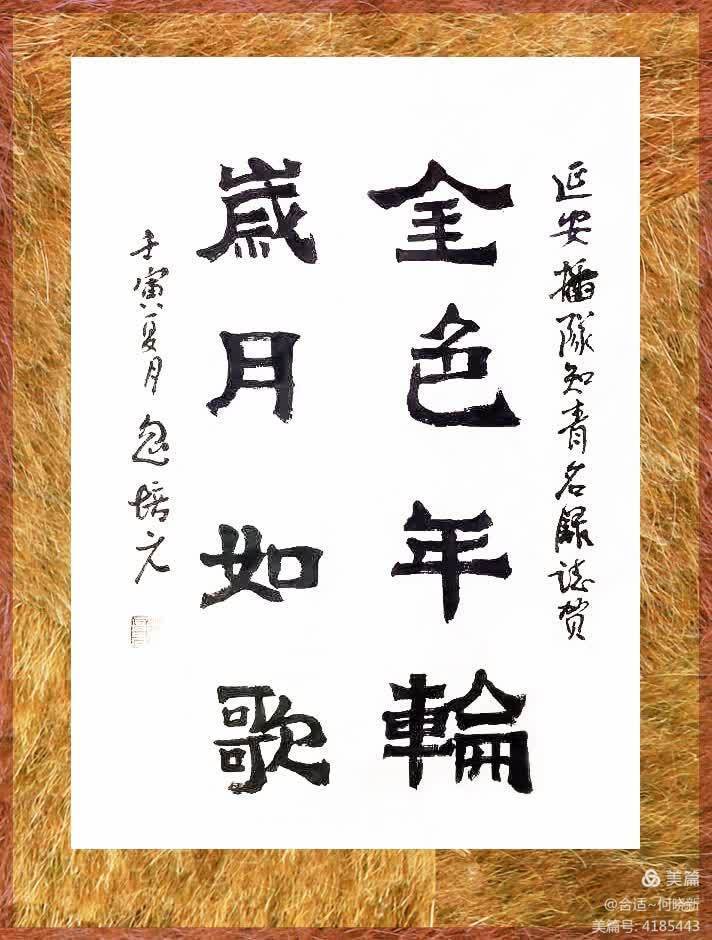 延安插隊知青名録誌賀
金色年輪
歲月如歌
壬寅夏月 忽培元
美篇
@合适~何晓新
美篇号: 4185443